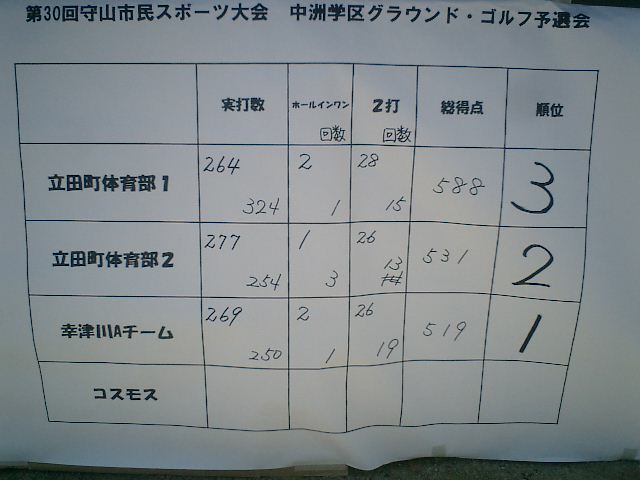 第30回守山市民スポーツ大会 中洲学区グラウンド・ゴルフ予選会
実打数 ホールインワン 回数 2打 回数 総得点 順位
立田町体育部1 264 324 2 1 28 15 588 3
立田町体育部2 277 254 1 3 26 13 531 2
幸津川Aチーム 269 250 2 1 26 19 519 1
コスモス